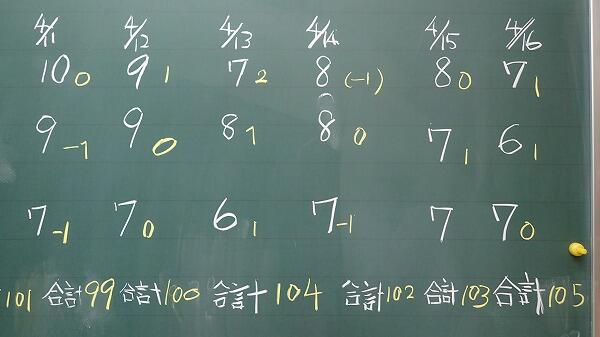 4/11 4/12 4/13 4/14 4/15 4/16
10 0 9 1 7 2 8 (-1) 8 0 7 1
9 -1 9 0 8 1 8 0 7 1 6 1
7 -1 7 0 6 1 7 -1 7 7 0
101 合計99 合計100 合計104 合計102 合計103 合計105